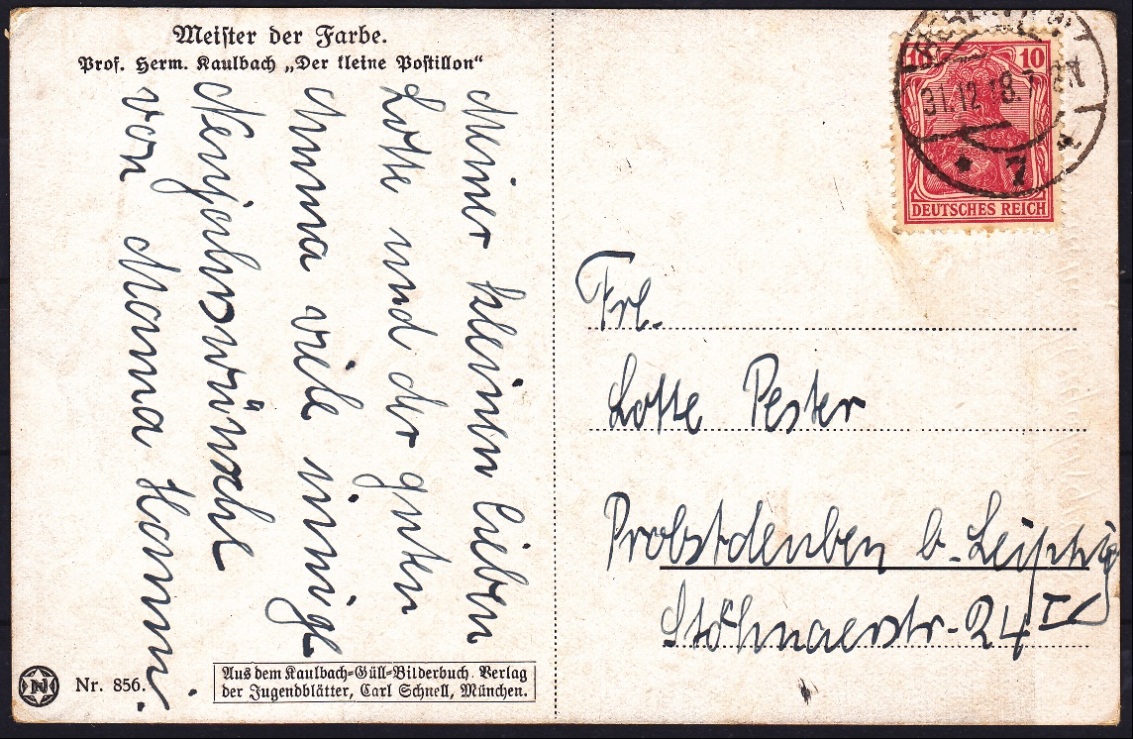 Meister der Farbe.
Prof. Herm. Kaulbach „Der kleine Postillon“
Meiner kleinen lieben
Lotte und der guten
Mama viele innige
Neujahrswünsche
von Mama Hanni.
10 10
31.12.18.7
* 7 *
DEUTSCHES REICH
Frl.
Lotte Pester
Probstdeuben b. Leipzig
Stöhnaerstr. 24 II
Nr. 856.
Aus dem Kaulbach-Güll-Bilderbuch. Verlag
der Jugendblätter, Carl Schnell, München.